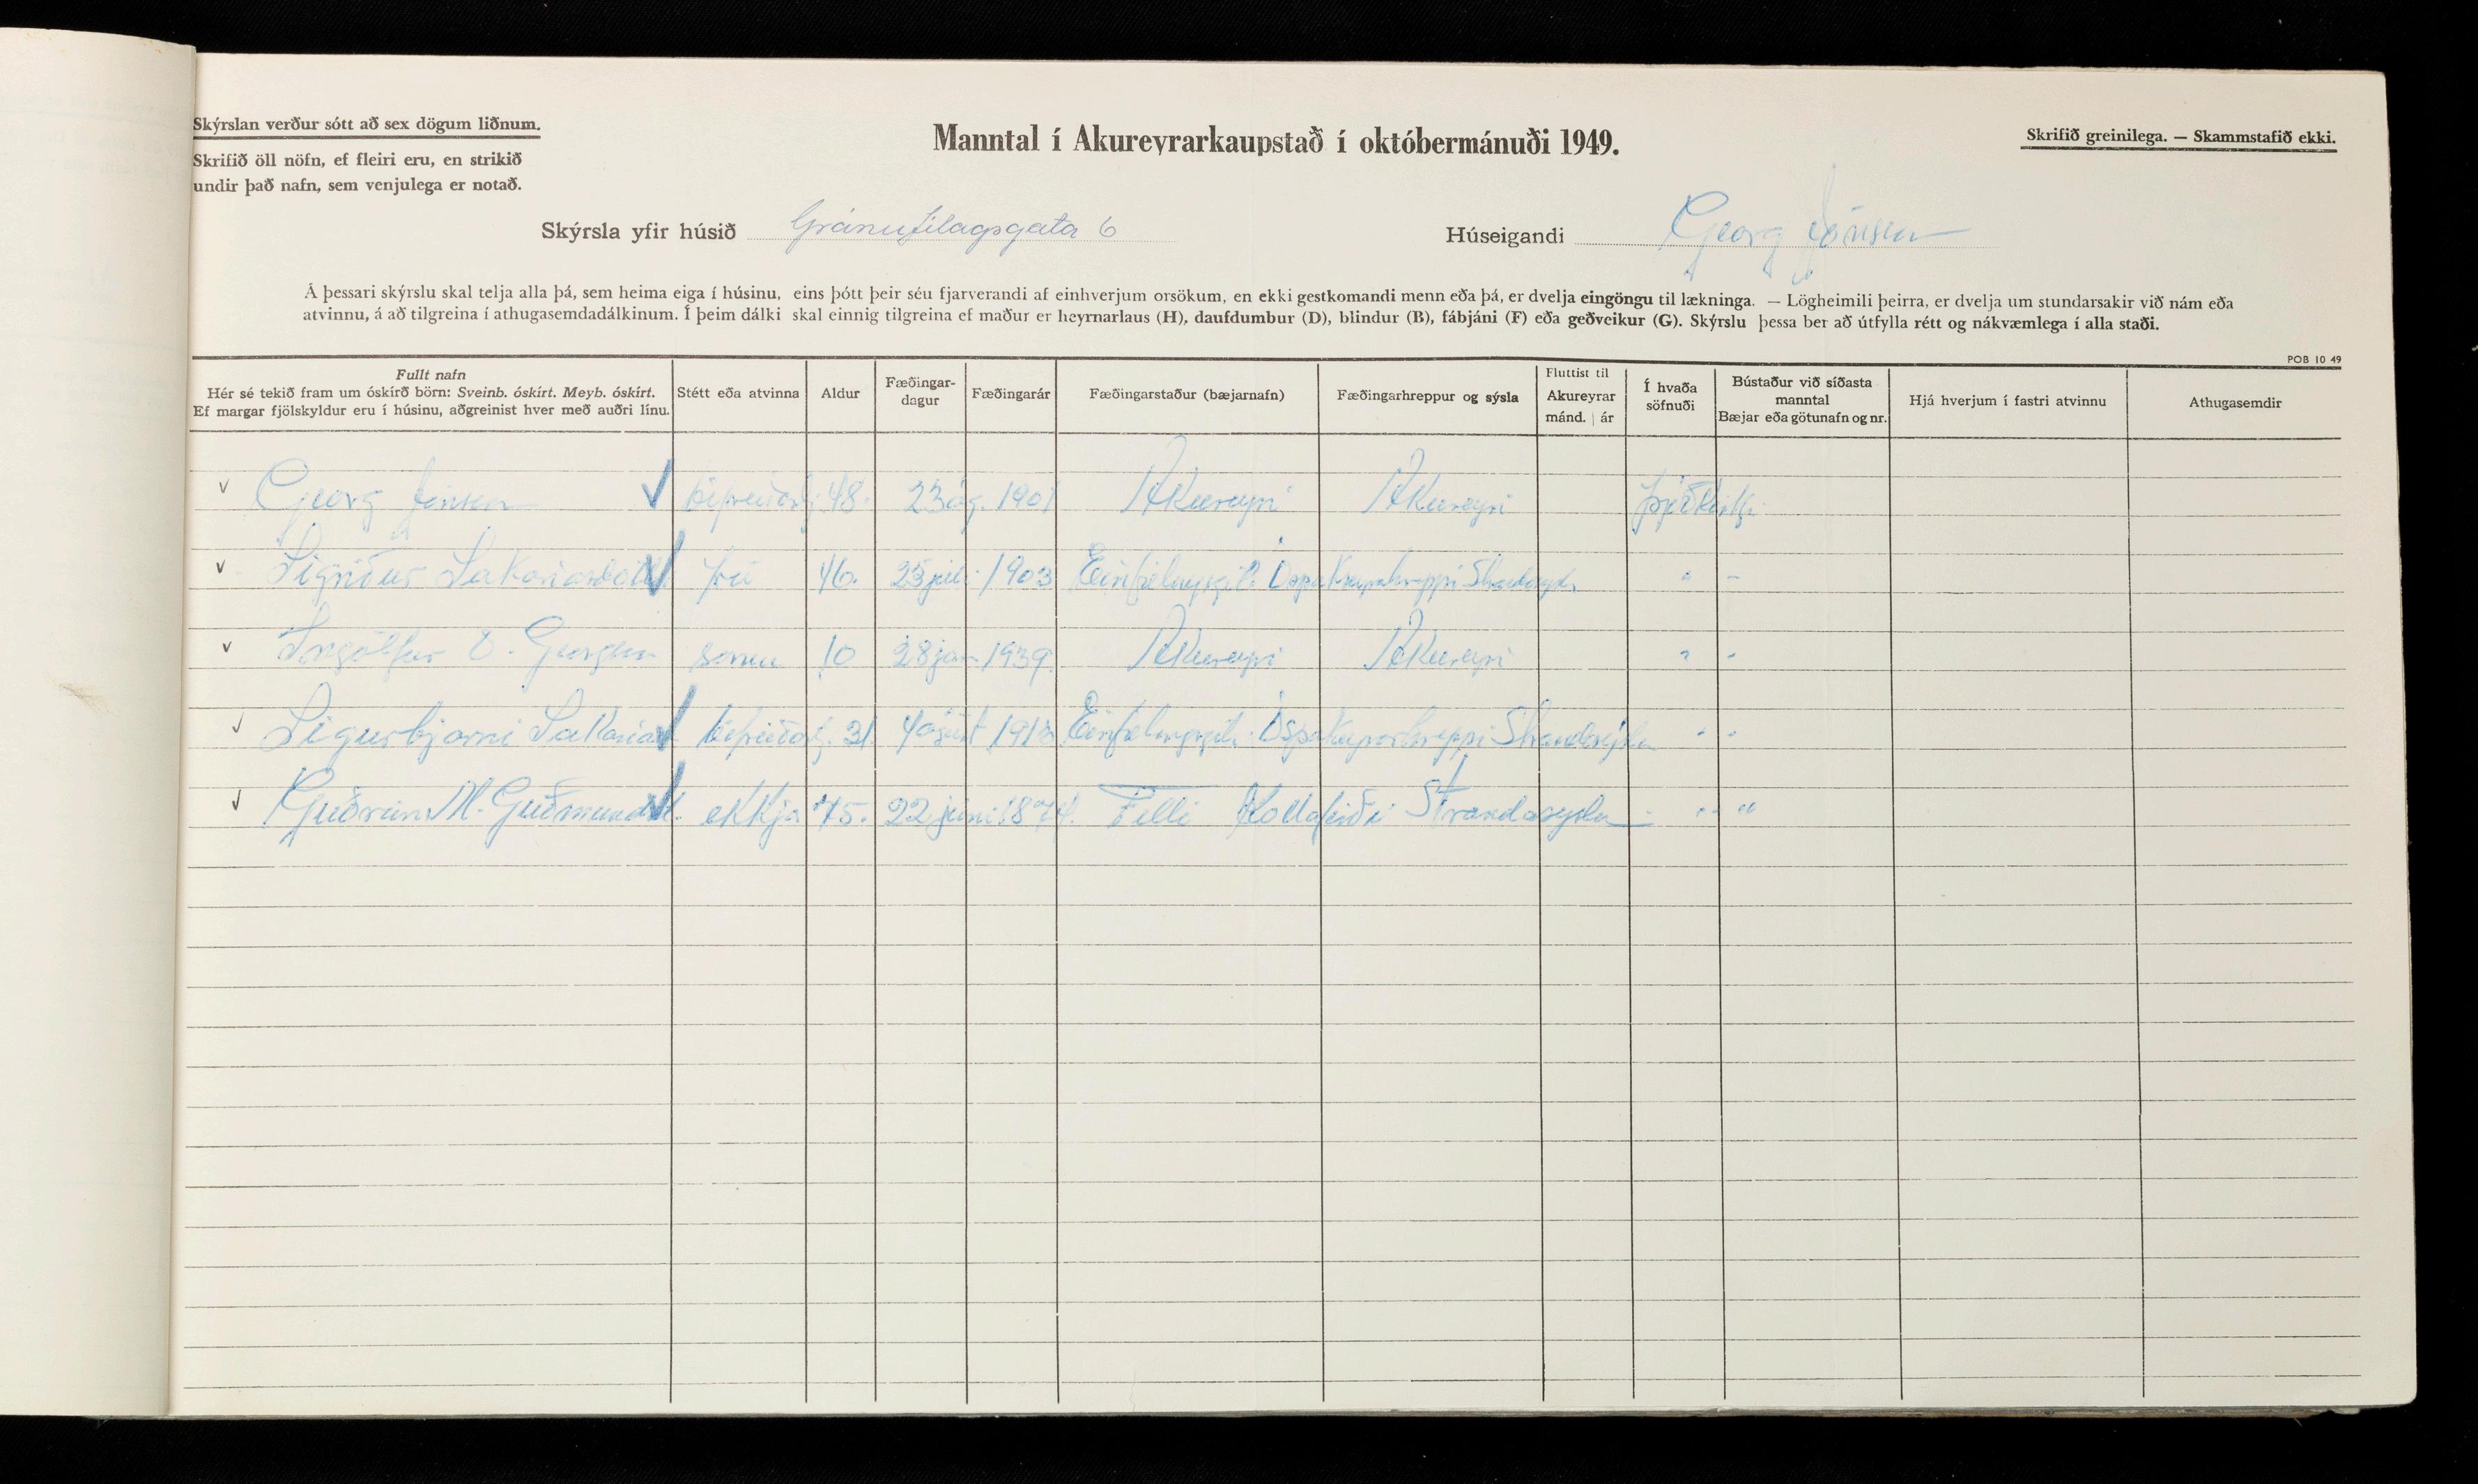 Skýrslan verður sótt að sex dögum liðnum.
Skrifið öll nöfn, ef fleiri eru, en strikið
undir það nafn, sem venjulega er notað.
Manntal í Akureyrarkaupstað í októbermánuði 1949.
Skrifið greinilega. — Skammstafið ekki.
Skýrsla yfir húsið Gránufélagsgata 6
Húseigandi Georg Jónsson
Á þessari skýrslu skal telja alla þá, sem heima eiga í húsinu, eins þótt þeir séu fjarverandi af einhverjum orsökum, en ekki gestkomandi menn eða þá, er dvelja eingöngu til lækninga. — Lögheimili þeirra, er dvelja um stundarsakir við nám eða
atvinnu, á að tilgreina í athugasemdadálkinum. Í þeim dálki skal einnig tilgreina ef maður er heyrnarlaus (H), daufdumbur (D), blindur (B), fábjáni (F) eða geðveikur (G). Skýrslu þessa ber að útfylla rétt og nákvæmlega í alla staði.
POB 10 49
Fullt nafn
Hér sé tekið fram um óskírð börn: Sveinb. óskírt. Meyb. óskírt.
Ef margar fjölskyldur eru í húsinu, aðgreinist hver með auðri línu.
Stétt eða atvinna
Aldur
Fæðingar-
dagur
Fæðingarár
Fæðingarstaður (bæjarnafn)
Fæðingarhreppur og sýsla
Fluttist til
Akureyrar
mánd. | ár
Í hvaða
söfnuði
Bústaður við síðasta
manntal
Bæjar eða götunafn og nr.
Hjá hverjum í fastri atvinnu
Athugasemdir
v Georg Jónsson bifreiðastj. 48. 23 ág. 1901 Akureyri Akureyri þjóðkirkj.
v Sigríður Sakaríasdóttir frú 46. 25 júlí 1903 Óspakseyrarhreppi Strandasýslu " -
v Ingólfur Georgsson sonur 10 28 jan 1939. Akureyri Akureyri " -
v Sigurbjörni Sakarías bifreiðastj. 31. 4 ágúst Óspakseyrarhreppi Strandasýslu " "
v Guðrún M. Guðmundsd. ekkja 75. 22 júní 1874. Felli Kollafirði Strandasýslu " "